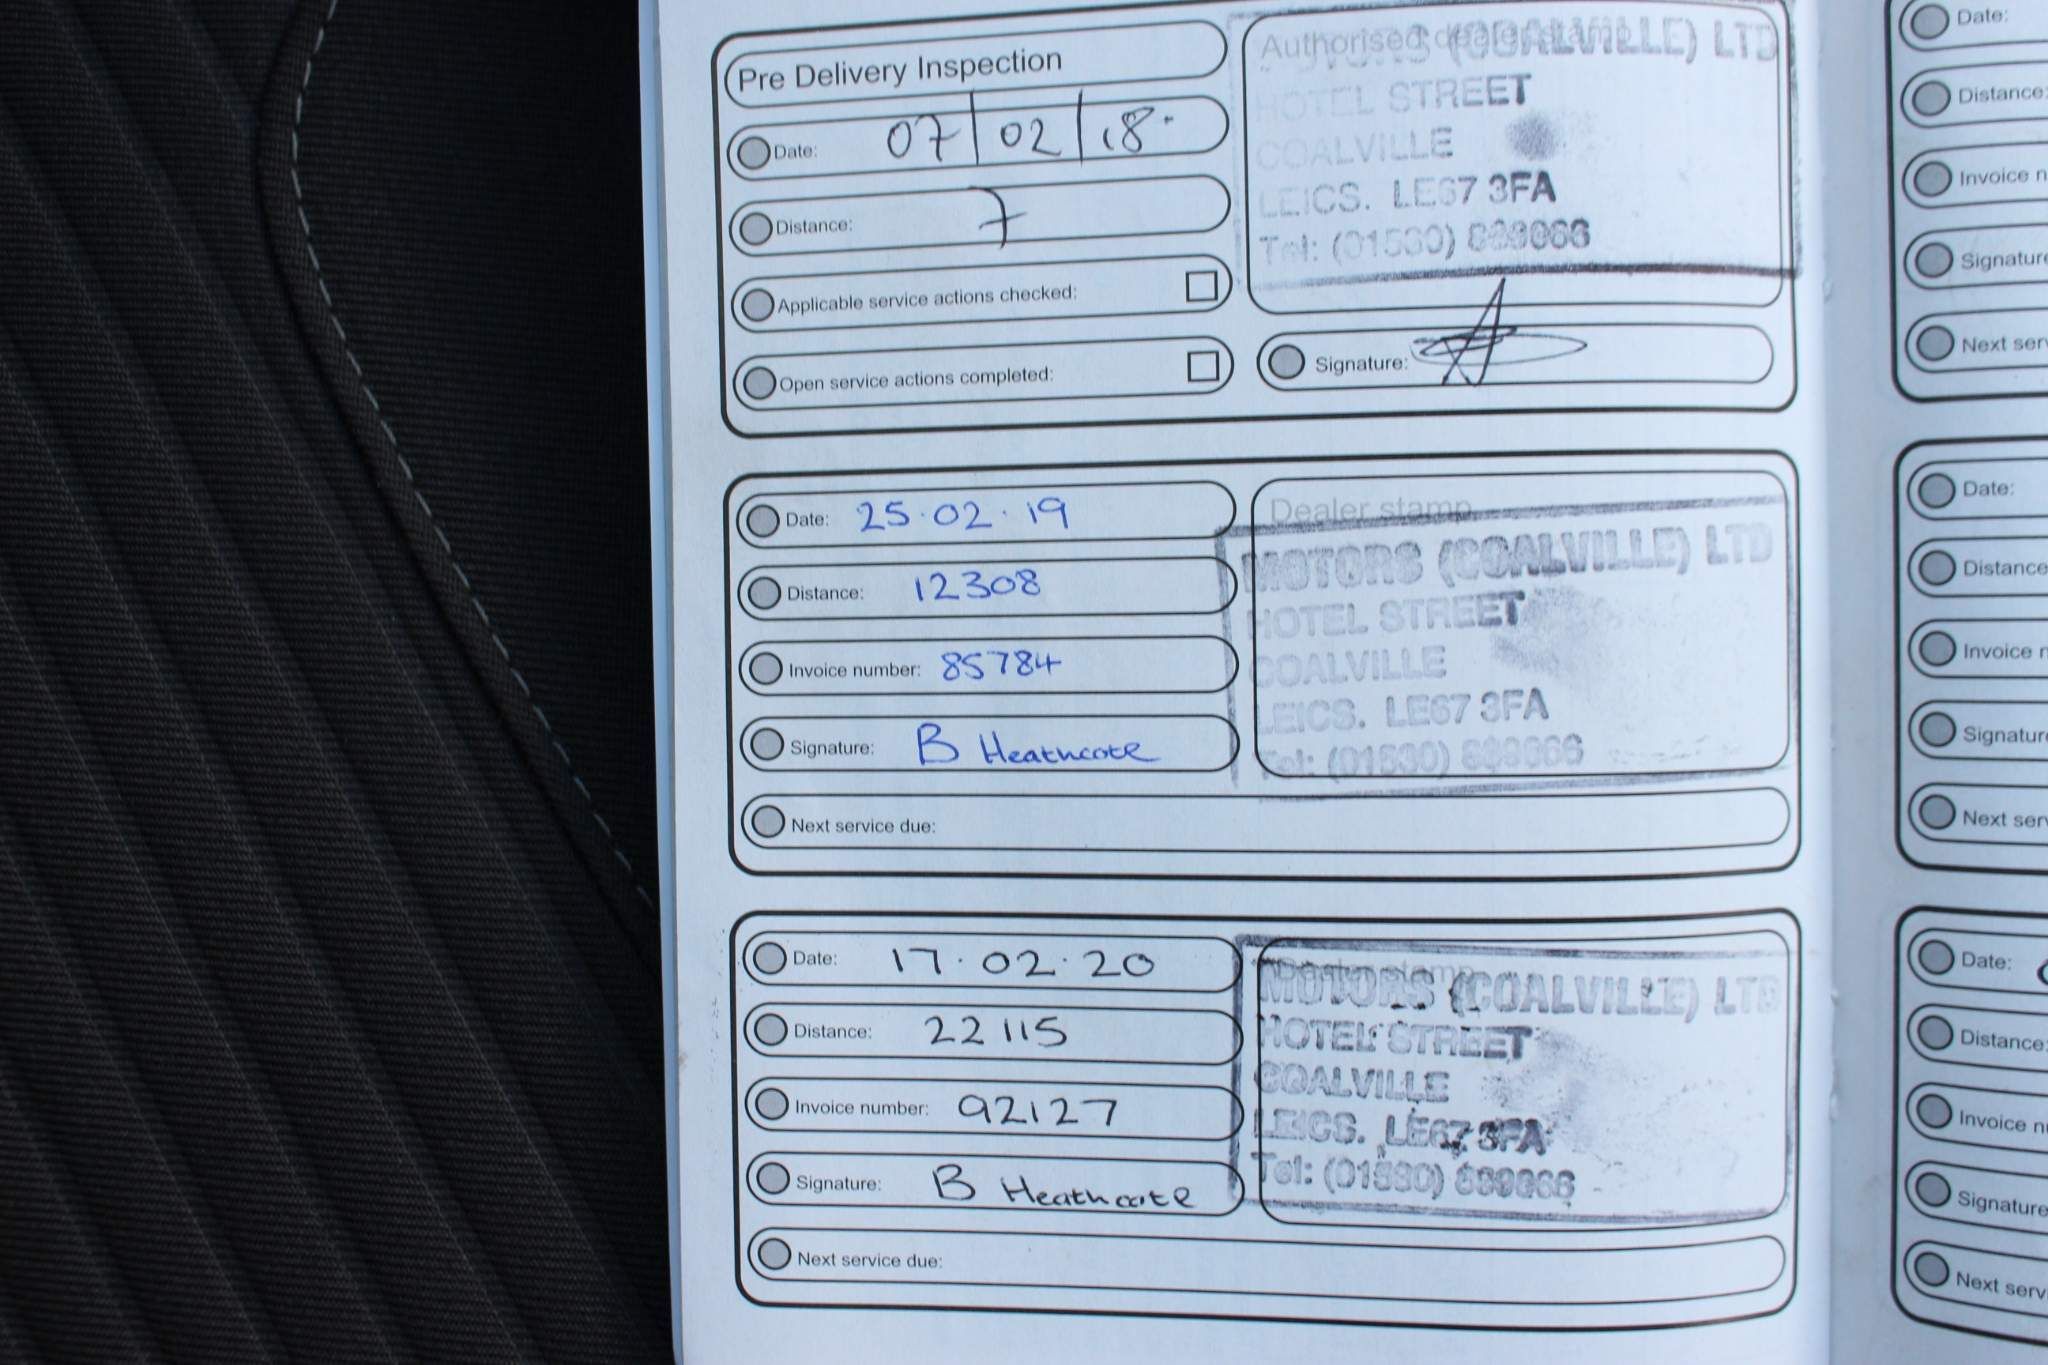 Pre Delivery Inspection
Date: 07/02/18.
Distance: 7
Applicable service actions checked:
Open service actions completed:
Authorised dealer stamp
(COALVILLE) LTD
HOTEL STREET
COALVILLE
LEICS. LE67 3FA
Tel: (01530)
Signature:
Date: 25.02.19
Distance: 12308
Invoice number: 85784
Signature: B Heathcote
Next service due:
Dealer stamp
MOTORS (COALVILLE) LTD
HOTEL STREET
COALVILLE
LEICS. LE67 3FA
Tel: (01530)
Date: 17.02.20
Distance: 22115
Invoice number: 92127
Signature: B Heathcote
Next service due:
Dealer stamp
MOTORS (COALVILLE) LTD
HOTEL STREET
COALVILLE
LEICS. LE67 3FA
Tel: (01530)
Date:
Distance:
Invoice n
Signature
Next serv
Date:
Distance
Invoice n
Signatur
Next serv
Date:
Distance:
Invoice n
Signature
Next serv